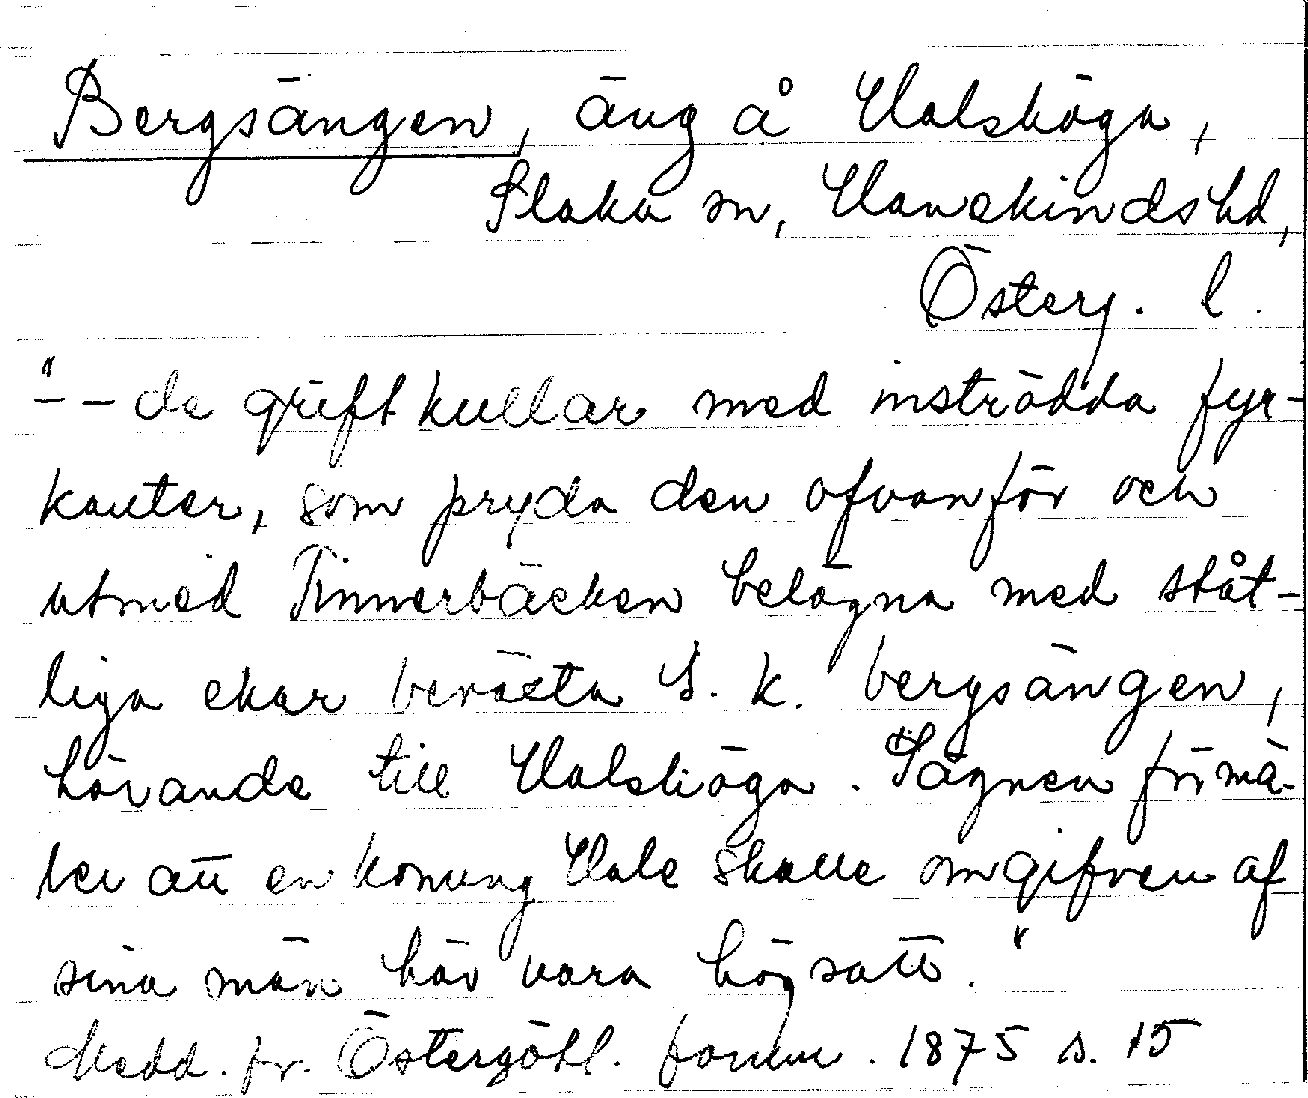 Bergsängen, äng å Valshöga,
Slaka sn, Hanekinds hd,
Österg. l.
"– – de grift kullar med inströdda fyr-
kanter, som pryda den ofvanför och
utmed Tinnerbäcken belägna med ståt-
liga ekar beväxta s. k. bergsängen,
hörande till Valshöga. Sägnen förmä-
ler att en konung Vale skall omgifven af
sina män här vara högsatt."
Medd. fr. Östergötl. fornm. 1875 s. 15